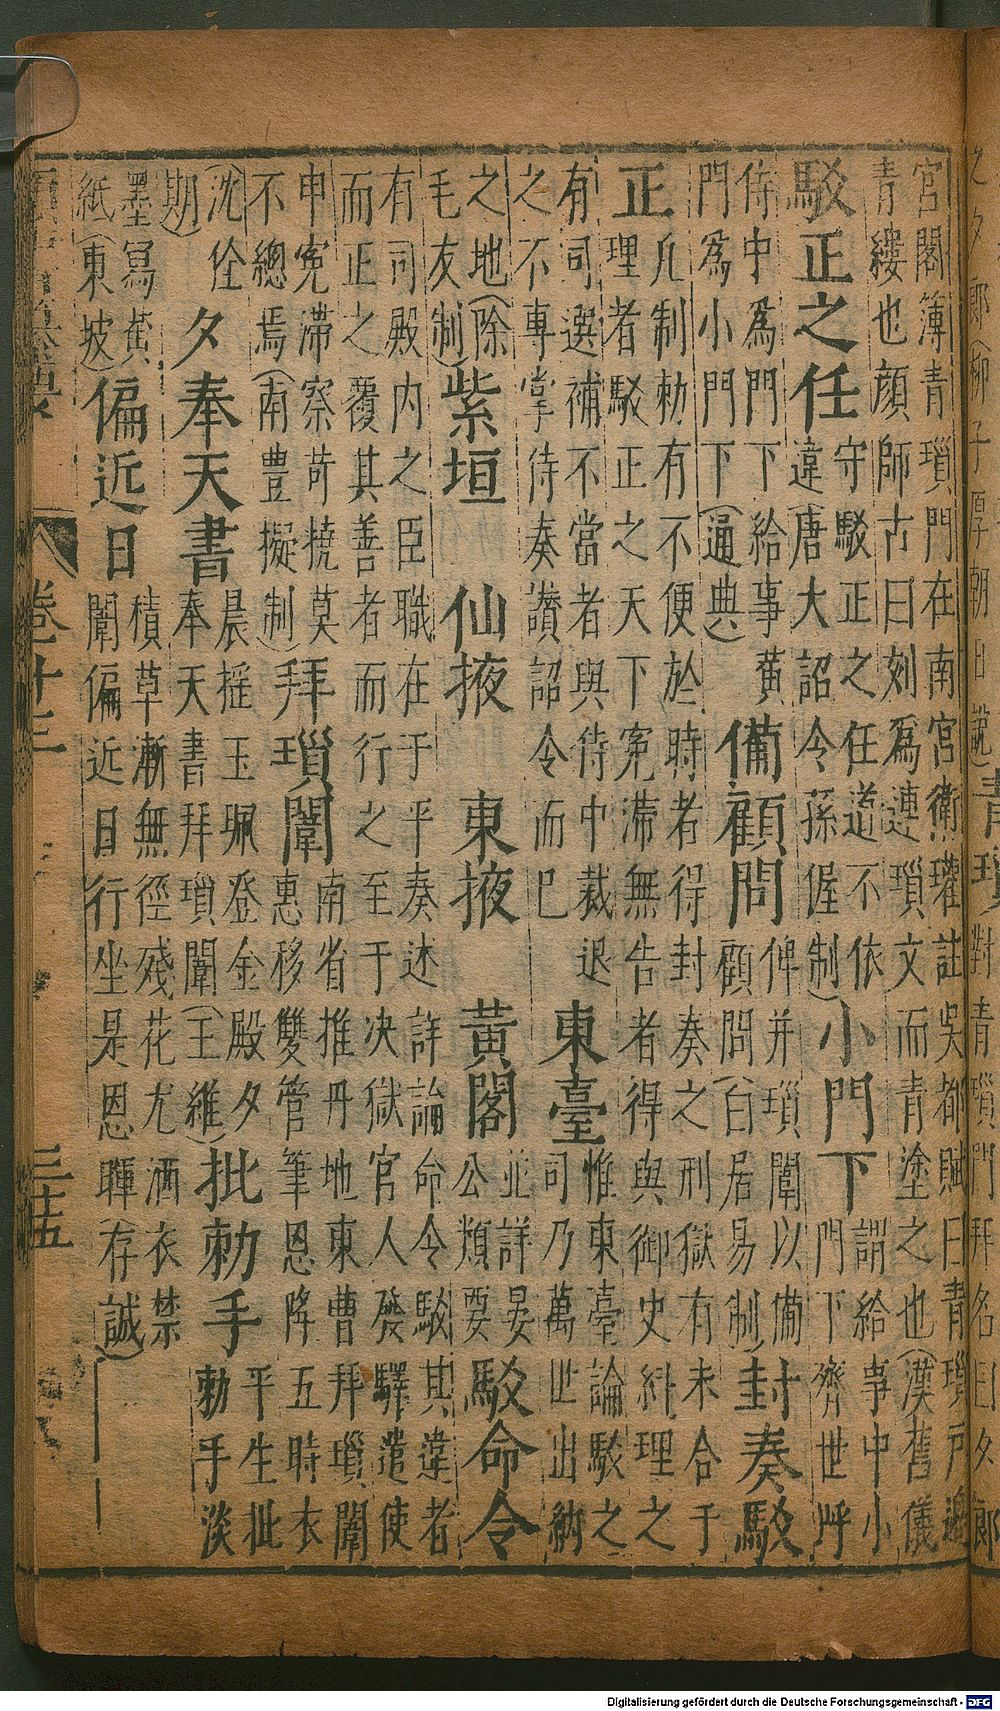 宮閣簿青瑣門在南宮衛瓘註吳都賦曰青瑣戶邊
青縷也顏師古曰刻為連瑣文而青塗之也(漢舊儀
駁正之任
守駁正之任道不依
違(唐大詔令孫偓制)
小門下
謂給事中小
門下齊世呼
侍中為門下給事黃
門為小門下(通典)
備顧問
俾并瑣闈以備
顧問(白居易制)
封奏駁
正
凡制勅有不便於時者得封奏之刑獄有未合于
理者駁正之天下冤滯無告者得與御史糾理之
有司選補不當者與侍中裁退
之不專掌侍奏讃詔令而已
東臺
惟東臺論駁之
司乃萬世出納
之地(除
毛友制)
紫垣 仙掖 東掖 黃閣
並詳晏
公類要
駁命令
有司殿内之臣職在于平奏述詳論命令駁其違者
而正之覆其善者而行之至于决獄官人發驛遣使
申寃滯察苛撓莫
不總焉(南豊擬制)
拜瑣闈
南省推丹地東曹拜瑣闈
惠移雙管筆恩降五時衣
(沈佺
期)
夕奉天書
晨揺玉珮登金殿夕
奉天書拜瑣闈(王維)
批勅手
平生批
勅手淡
墨寫黃
紙(東坡)
偏近日
積草漸無徑殘花尤洒衣禁
闈偏近日行坐是恩暉(存誠)
卷十三
三十五
Digitalisierung gefördert durch die Deutsche Forschungsgemeinschaft - DFG